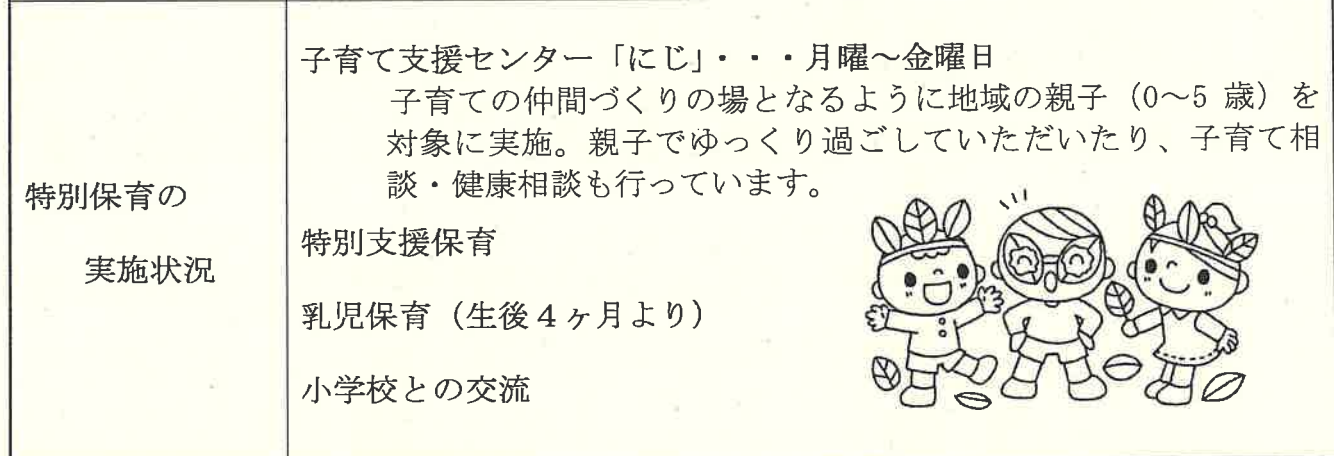 特別保育の
実施状況
子育て支援センター「にじ」・・・月曜～金曜日
子育ての仲間づくりの場となるように地域の親子（0～5 歳）を
対象に実施。親子でゆっくり過ごしていただいたり、子育て相
談・健康相談も行っています。
特別支援保育
乳児保育（生後４ヶ月より）
小学校との交流